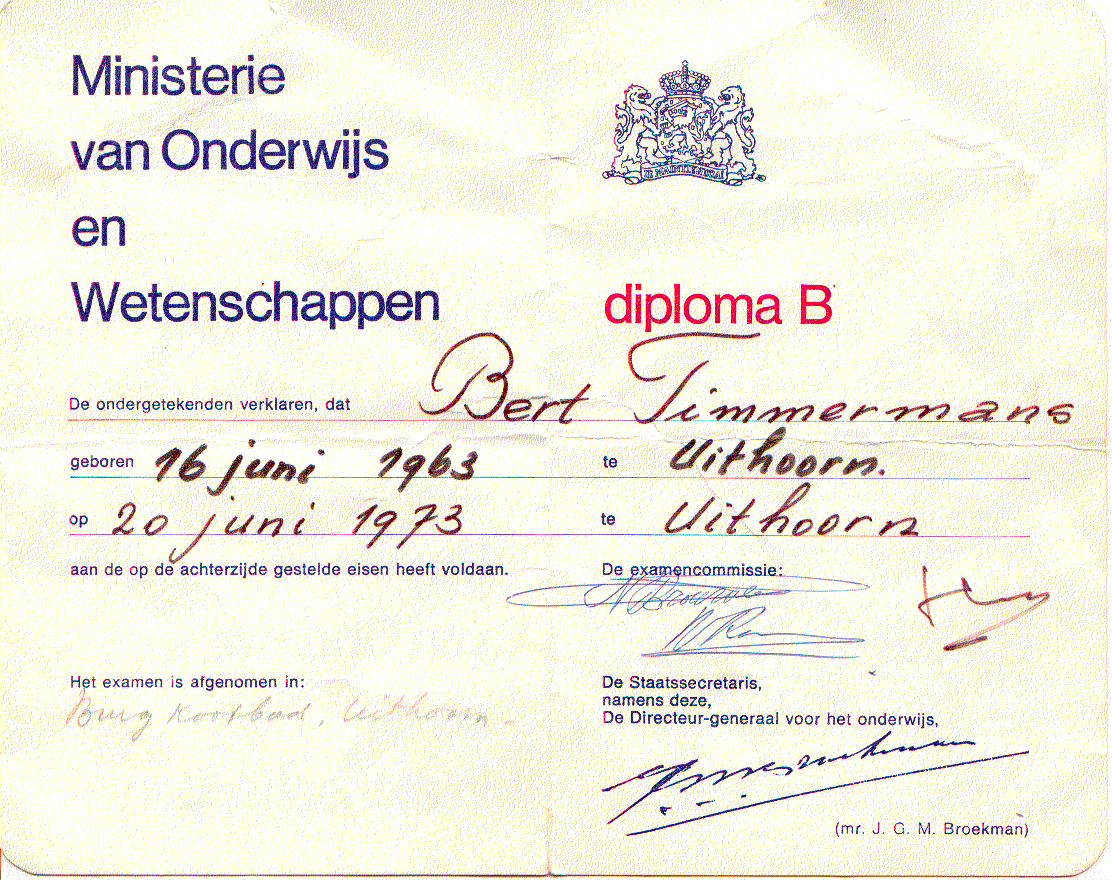 Ministerie
van Onderwijs
en
Wetenschappen
diploma B
De ondergetekenden verklaren, dat Bert Timmermans
geboren 16 juni 1963 te Uithoorn.
op 20 juni 1973 te Uithoorn
aan de op de achterzijde gestelde eisen heeft voldaan.
De examencommissie:
Het examen is afgenomen in:
Burg Kootbad, Uithoorn.
De Staatssecretaris,
namens deze,
De Directeur-generaal voor het onderwijs,
(mr. J. G. M. Broekman)